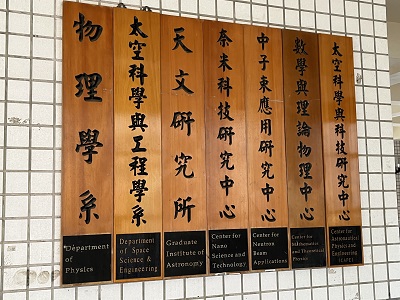 物理學系
Department
of
Physics
太空科學與工程學系
Department
of Space
Science &
Engineering
天文研究所
Graduate
Institute of
Astronomy
奈米科技研究中心
Center for
Nano
Science and
Technology
中子束應用研究中心
Center for
Neutron
Beam
Applications
數學與理論物理中心
Center for
Mathematics
and Theoretical
Physics
太空科學與科技研究中心
Center for
Astronautical
Physics and
Engineering